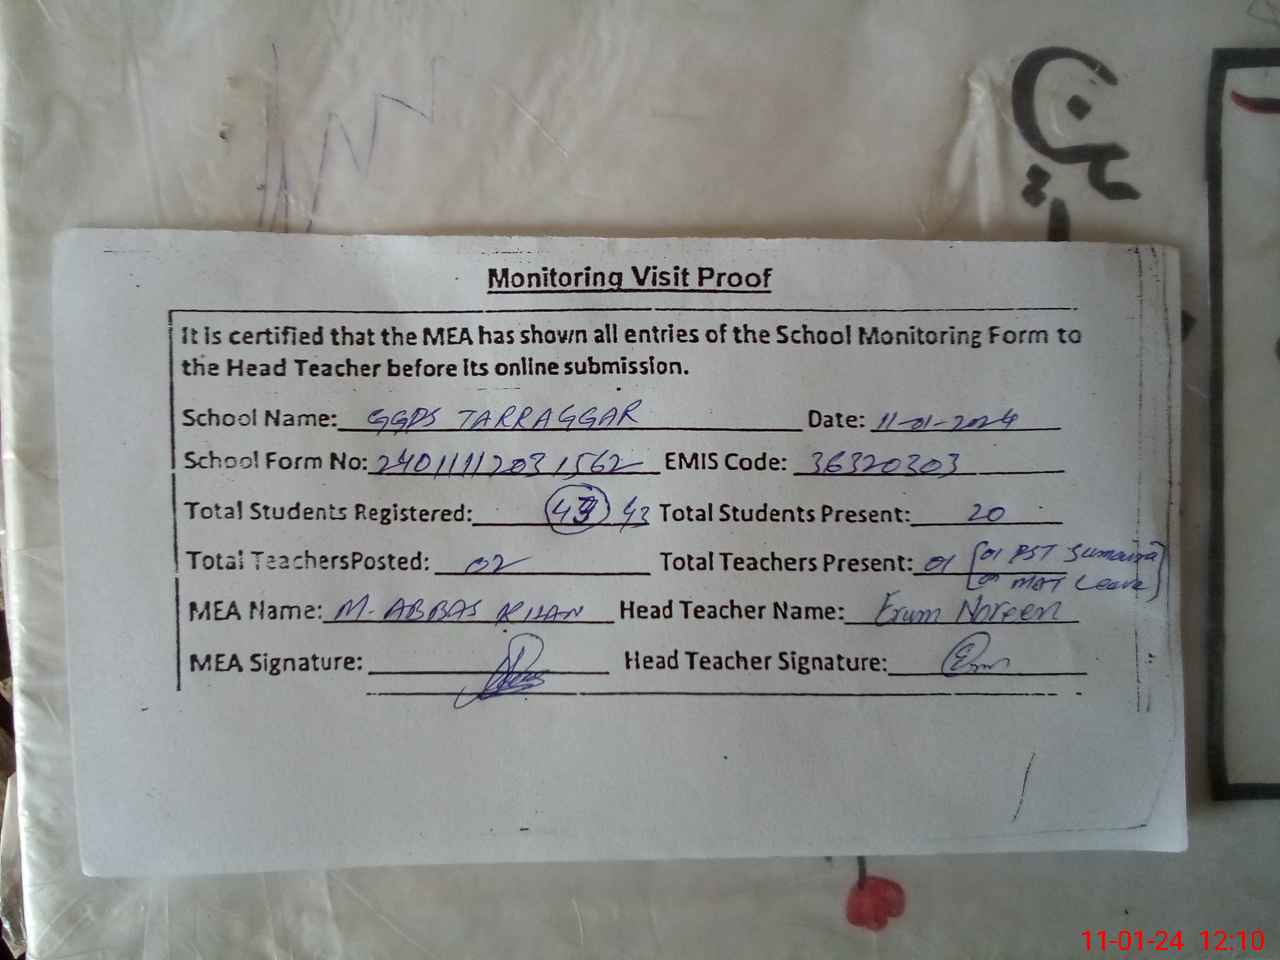 Monitoring Visit Proof
It is certified that the MEA has shown all entries of the School Monitoring Form to
the Head Teacher before its online submission.
School Name: GGPS TARRAGGAR Date: 11-01-2024
School Form No: 24011112031562 EMIS Code: 36320303
Total Students Registered: 43 43 Total Students Present: 20
Total TeachersPosted: 02 Total Teachers Present: 01 [01 PST Sumaira
01 MAT Leave]
MEA Name: M. ABBAS KHAN Head Teacher Name: Erum Noreen
MEA Signature: Head Teacher Signature:
11-01-24 12:10